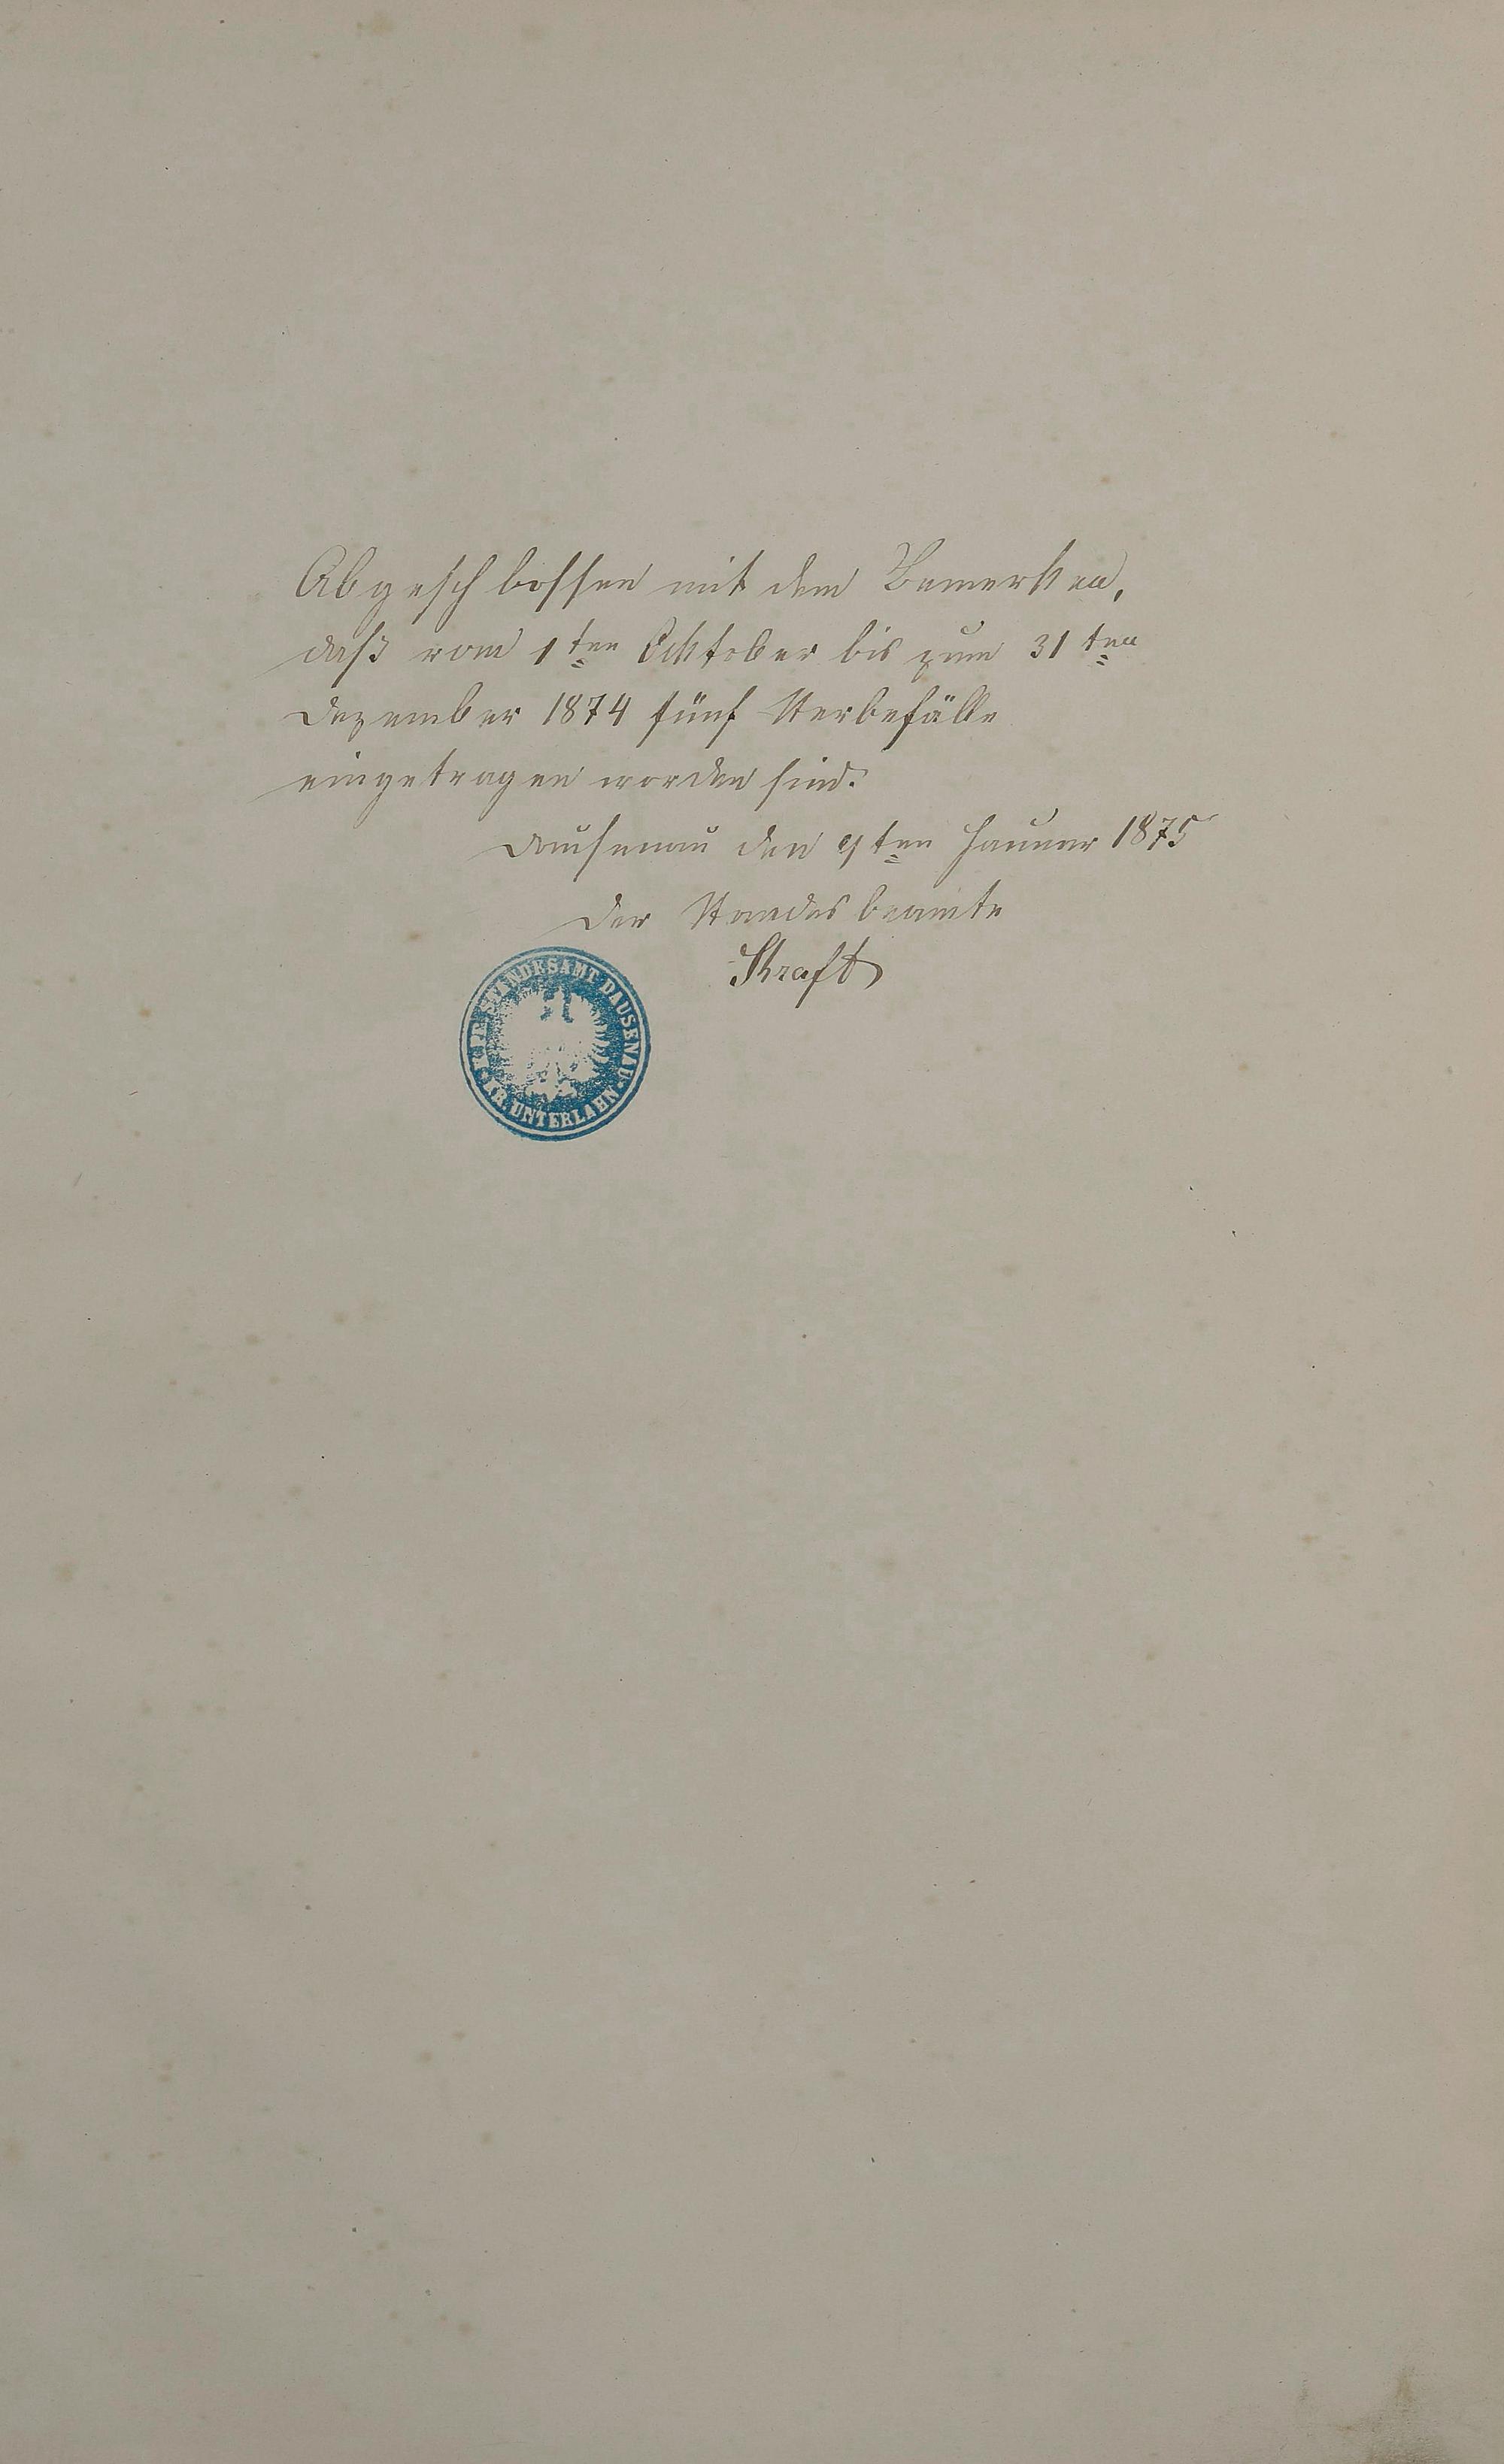 Abgeschlossen mit dem Bemerken,
daß vom 1ten Oktober bis zum 31ten
Dezember 1874 fünf Sterbefälle
eingetragen worden sind.
Dausenau den 9ten Januar 1875
Der Standesbeamte
Kraft
K. PR. STANDESAMT DAUSENAU
KR. UNTERLAHN